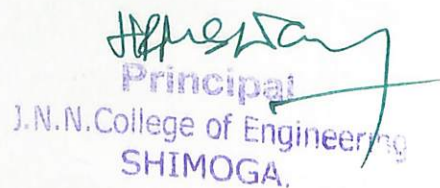 Principal
J.N.N.College of Engineering
SHIMOGA.